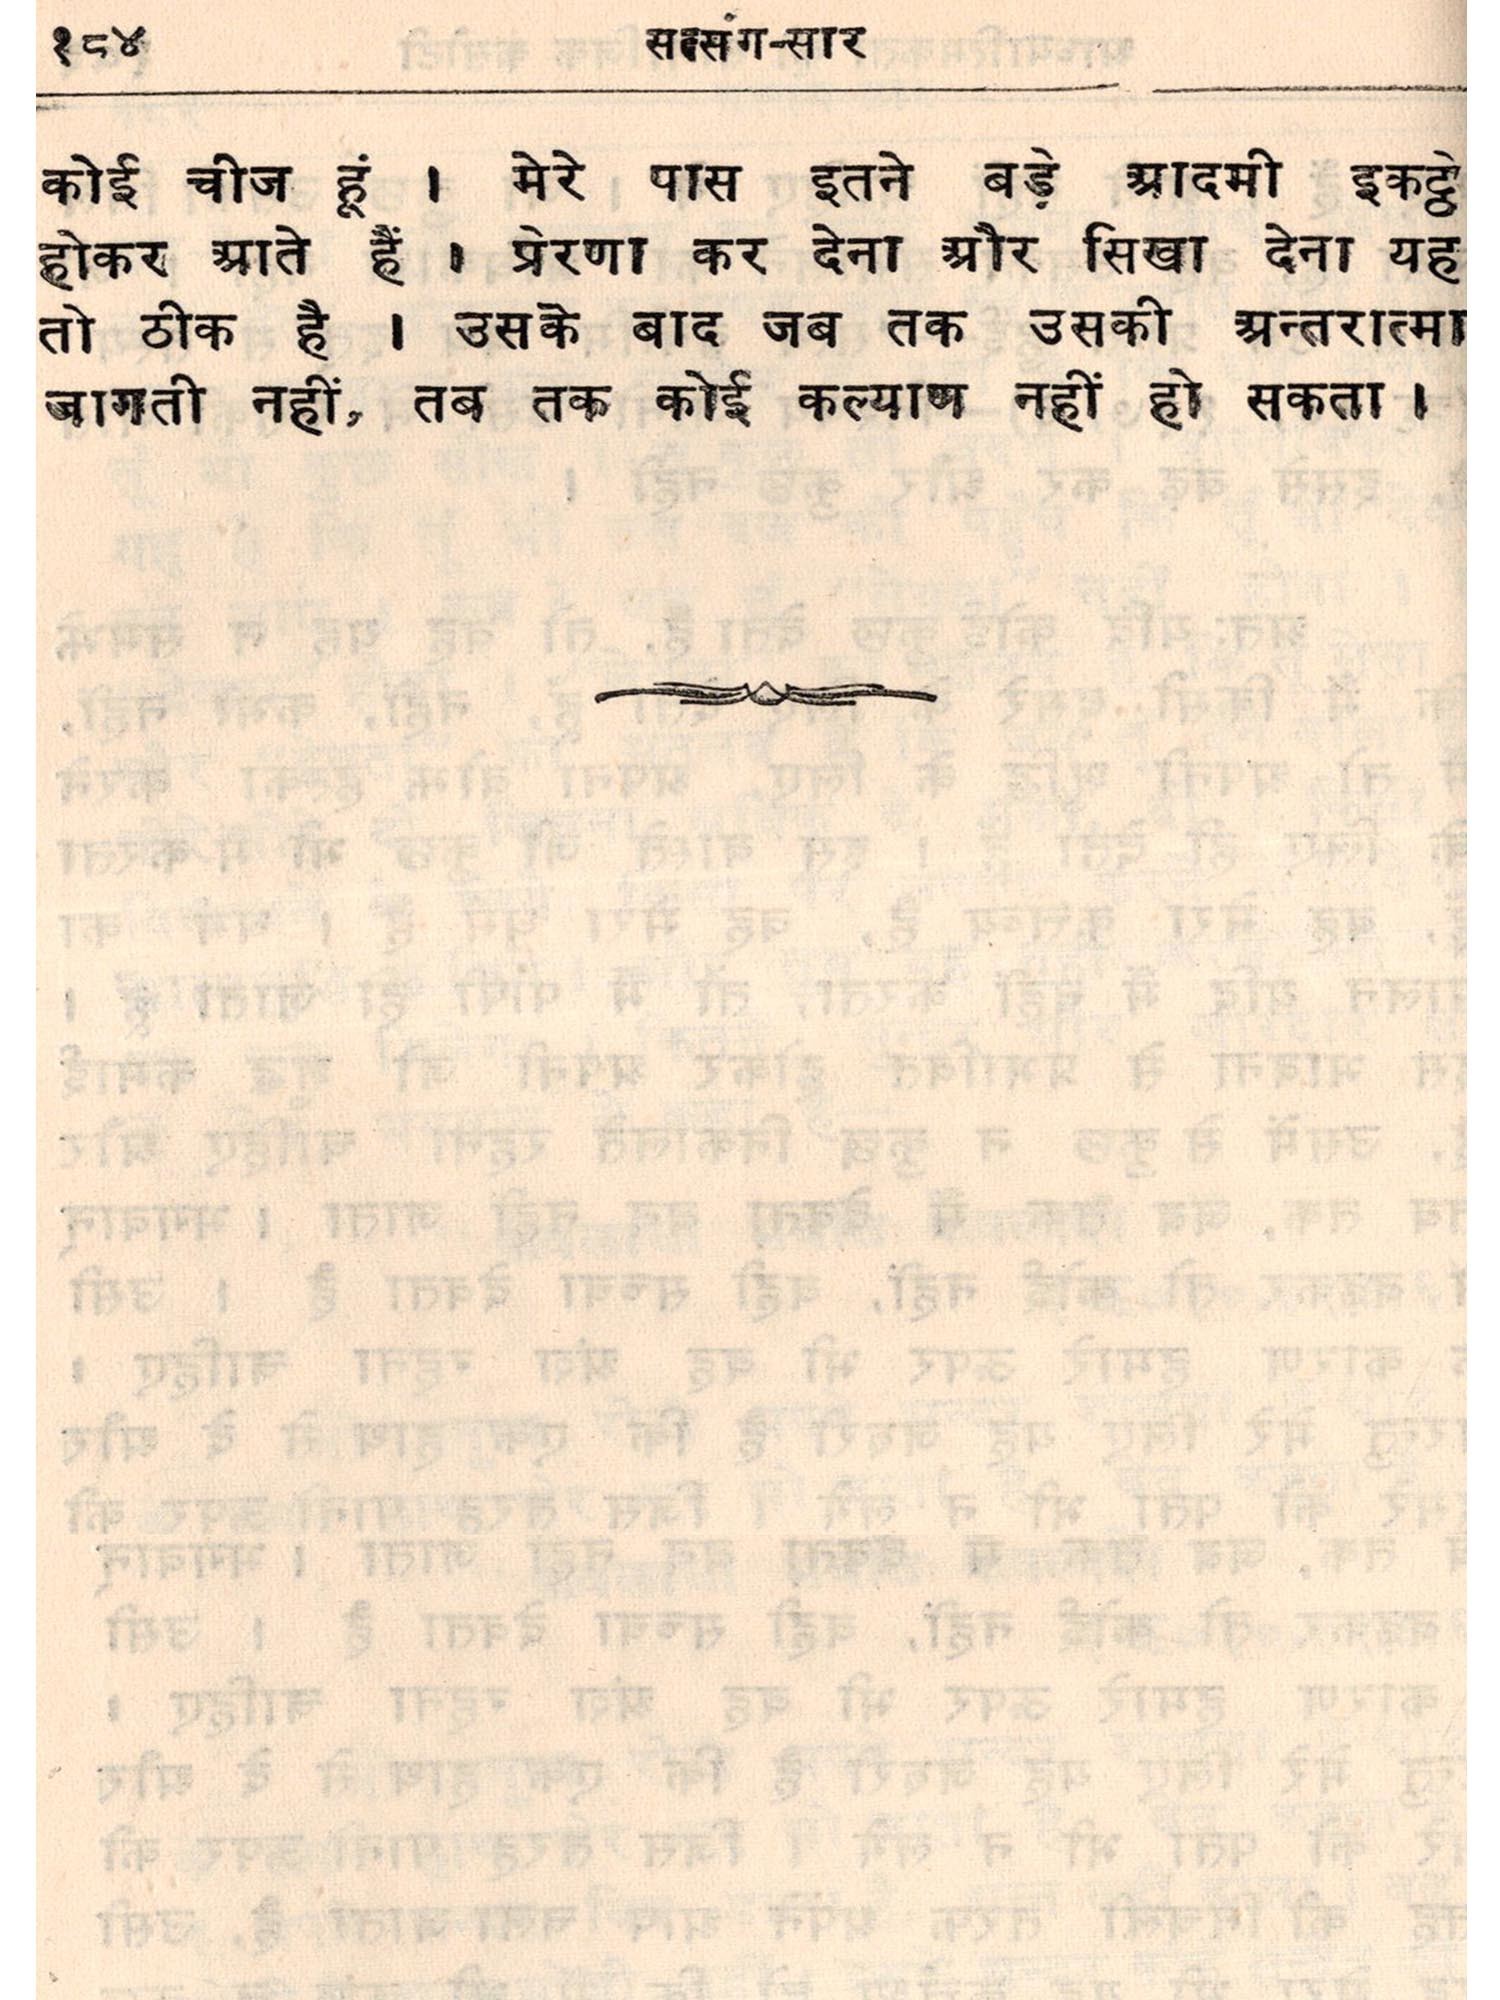 १८४ सत्संग-सार
कोई चीज हूं । मेरे पास इतने बड़े आदमी इकट्ठे
होकर आते हैं । प्रेरणा कर देना और सिखा देना यह
तो ठीक है । उसके बाद जब तक उसकी अन्तरात्मा
जागती नहीं, तब तक कोई कल्याण नहीं हो सकता ।